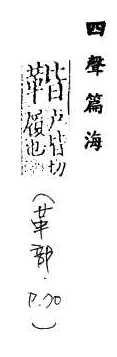 四聲篇海
户皆切
也
(革部. P.70)